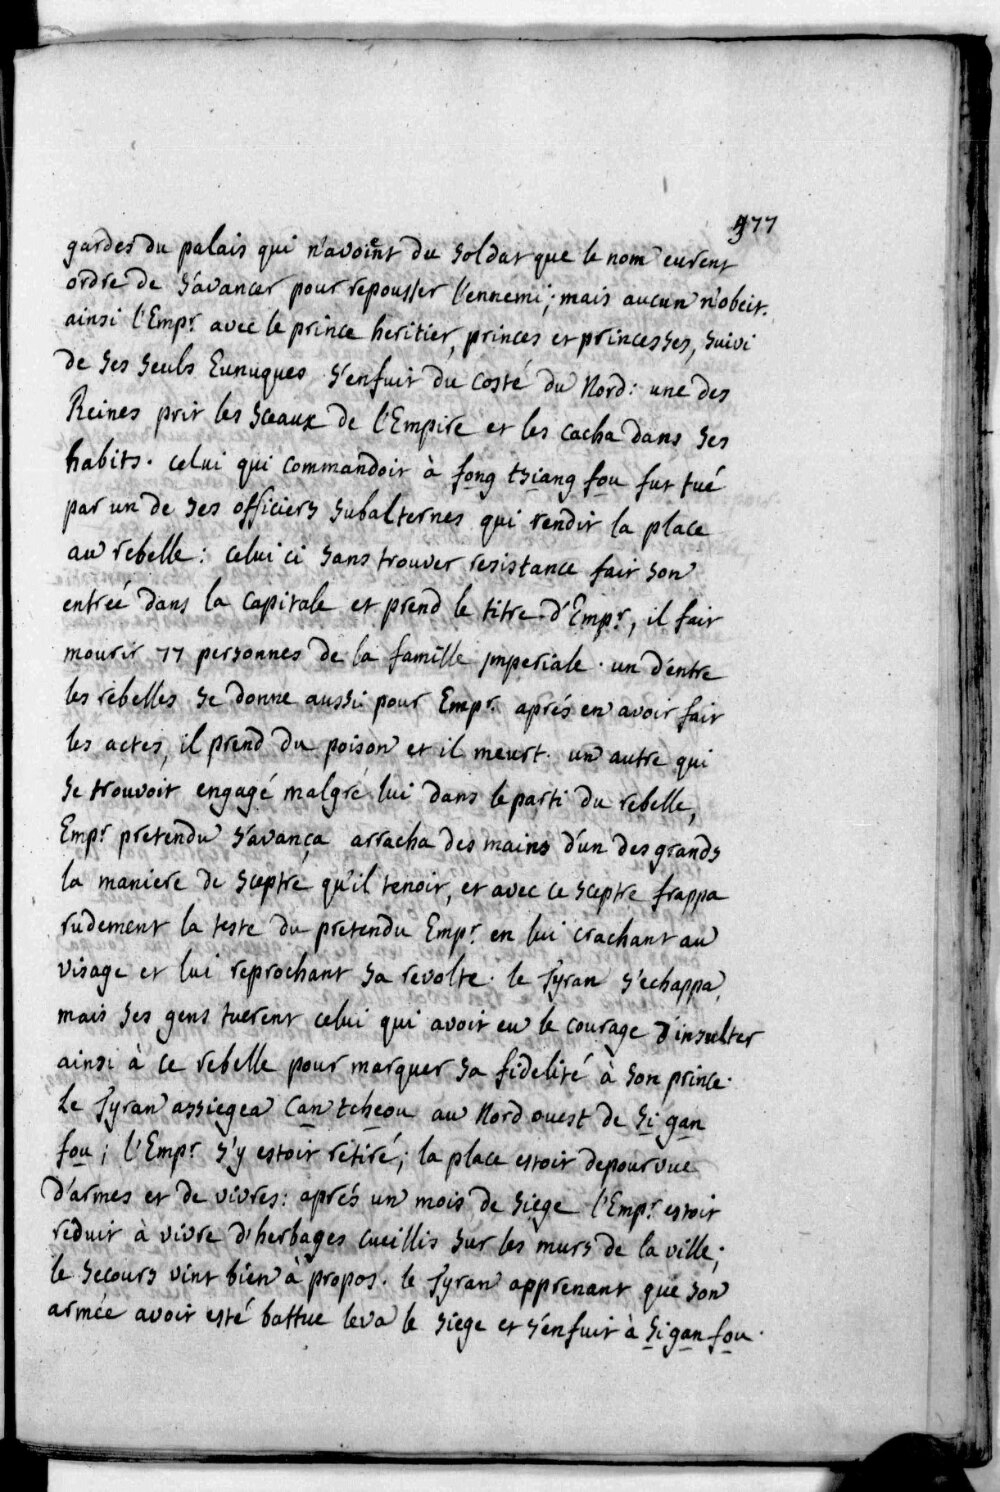 377
gardes du palais qui n'avoient du soldat que le nom eurent
ordre de s'avancer pour repousser l'ennemi; mais aucun n'obeit.
ainsi l'Empr avec le prince heritier, princes et princesses, suivi
de ses seuls Eunuques s'enfuit du costé du Nord: une des
Reines prit les sceaux de l'Empire et les cacha dans ses
habits. celui qui commandoit à fong tsiang fou fut tué
par un de ses officiers subalternes qui rendit la place
au rebelle: celui ci sans trouver resistance fait son
entreé dans la capitale et prend le titre d'Empr, il fait
mourir 77 personnes de la famille jmperiale. un d'entre
les rebelles se donne aussi pour Empr. aprés en avoir fait
les actes, il prend du poison et il meurt. un autre qui
se trouvoit engagé malgré lui dans le parti du rebelle,
Empr pretendu s'avança arracha des mains d'un des grands
la maniere de sceptre qu'il tenoit, et avec ce sceptre frappa
rudement la teste du pretendu Empr en lui crachant au
visage et lui reprochant sa revolte. le Tyran s'echappa,
mais ses gens tuerent celui qui avoit eu le courage d'insulter
ainsi à ce rebelle pour marquer sa fidelité à son prince.
Le Tyran assiegea Can tcheou au Nord ouest de Si gan
fou; l'Empr s'y estoit retiré; la place estoit depourvue
d'armes et de vivres: aprés un mois de siege l'Empr estoit
reduit à vivre d'herbages cueillis sur les murs de la ville;
le secours vint bien à propos. le Tyran apprenant que son
armée avoit esté battue leva le siege et s'enfuit à Si gan fou.